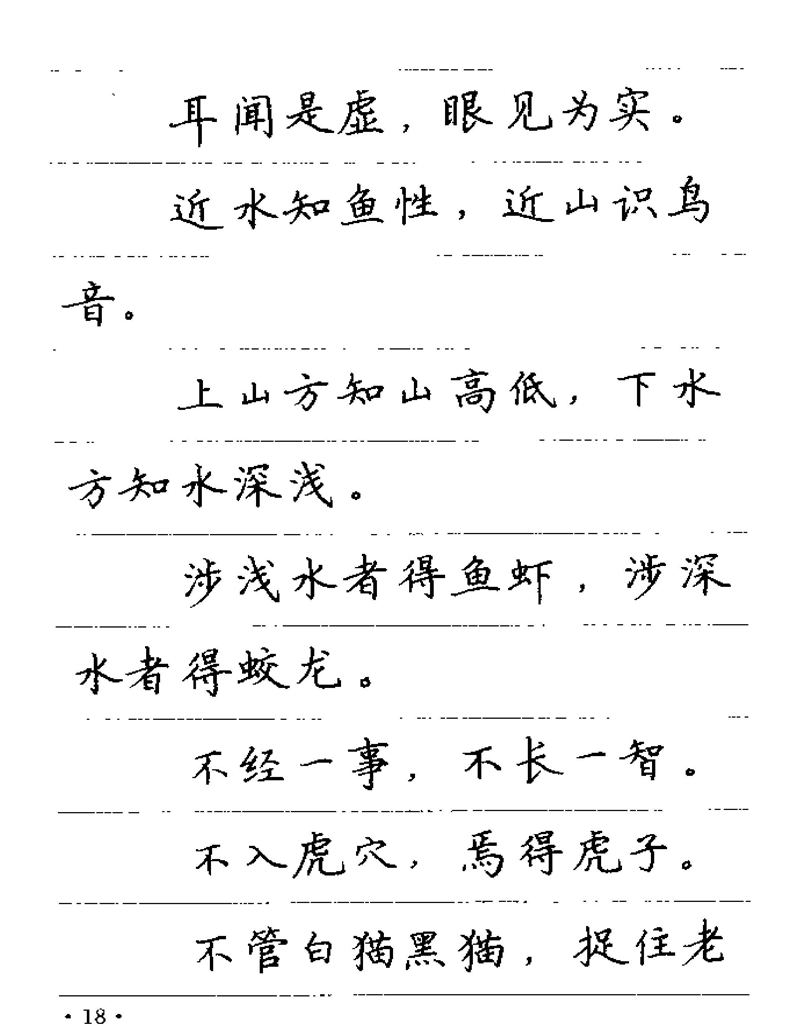 耳闻是虚，眼见为实。
近水知鱼性，近山识鸟
音。
上山方知山高低，下水
方知水深浅。
涉浅水者得鱼虾，涉深
水者得蛟龙。
不经一事，不长一智。
不入虎穴，焉得虎子。
不管白猫黑猫，捉住老
·18·